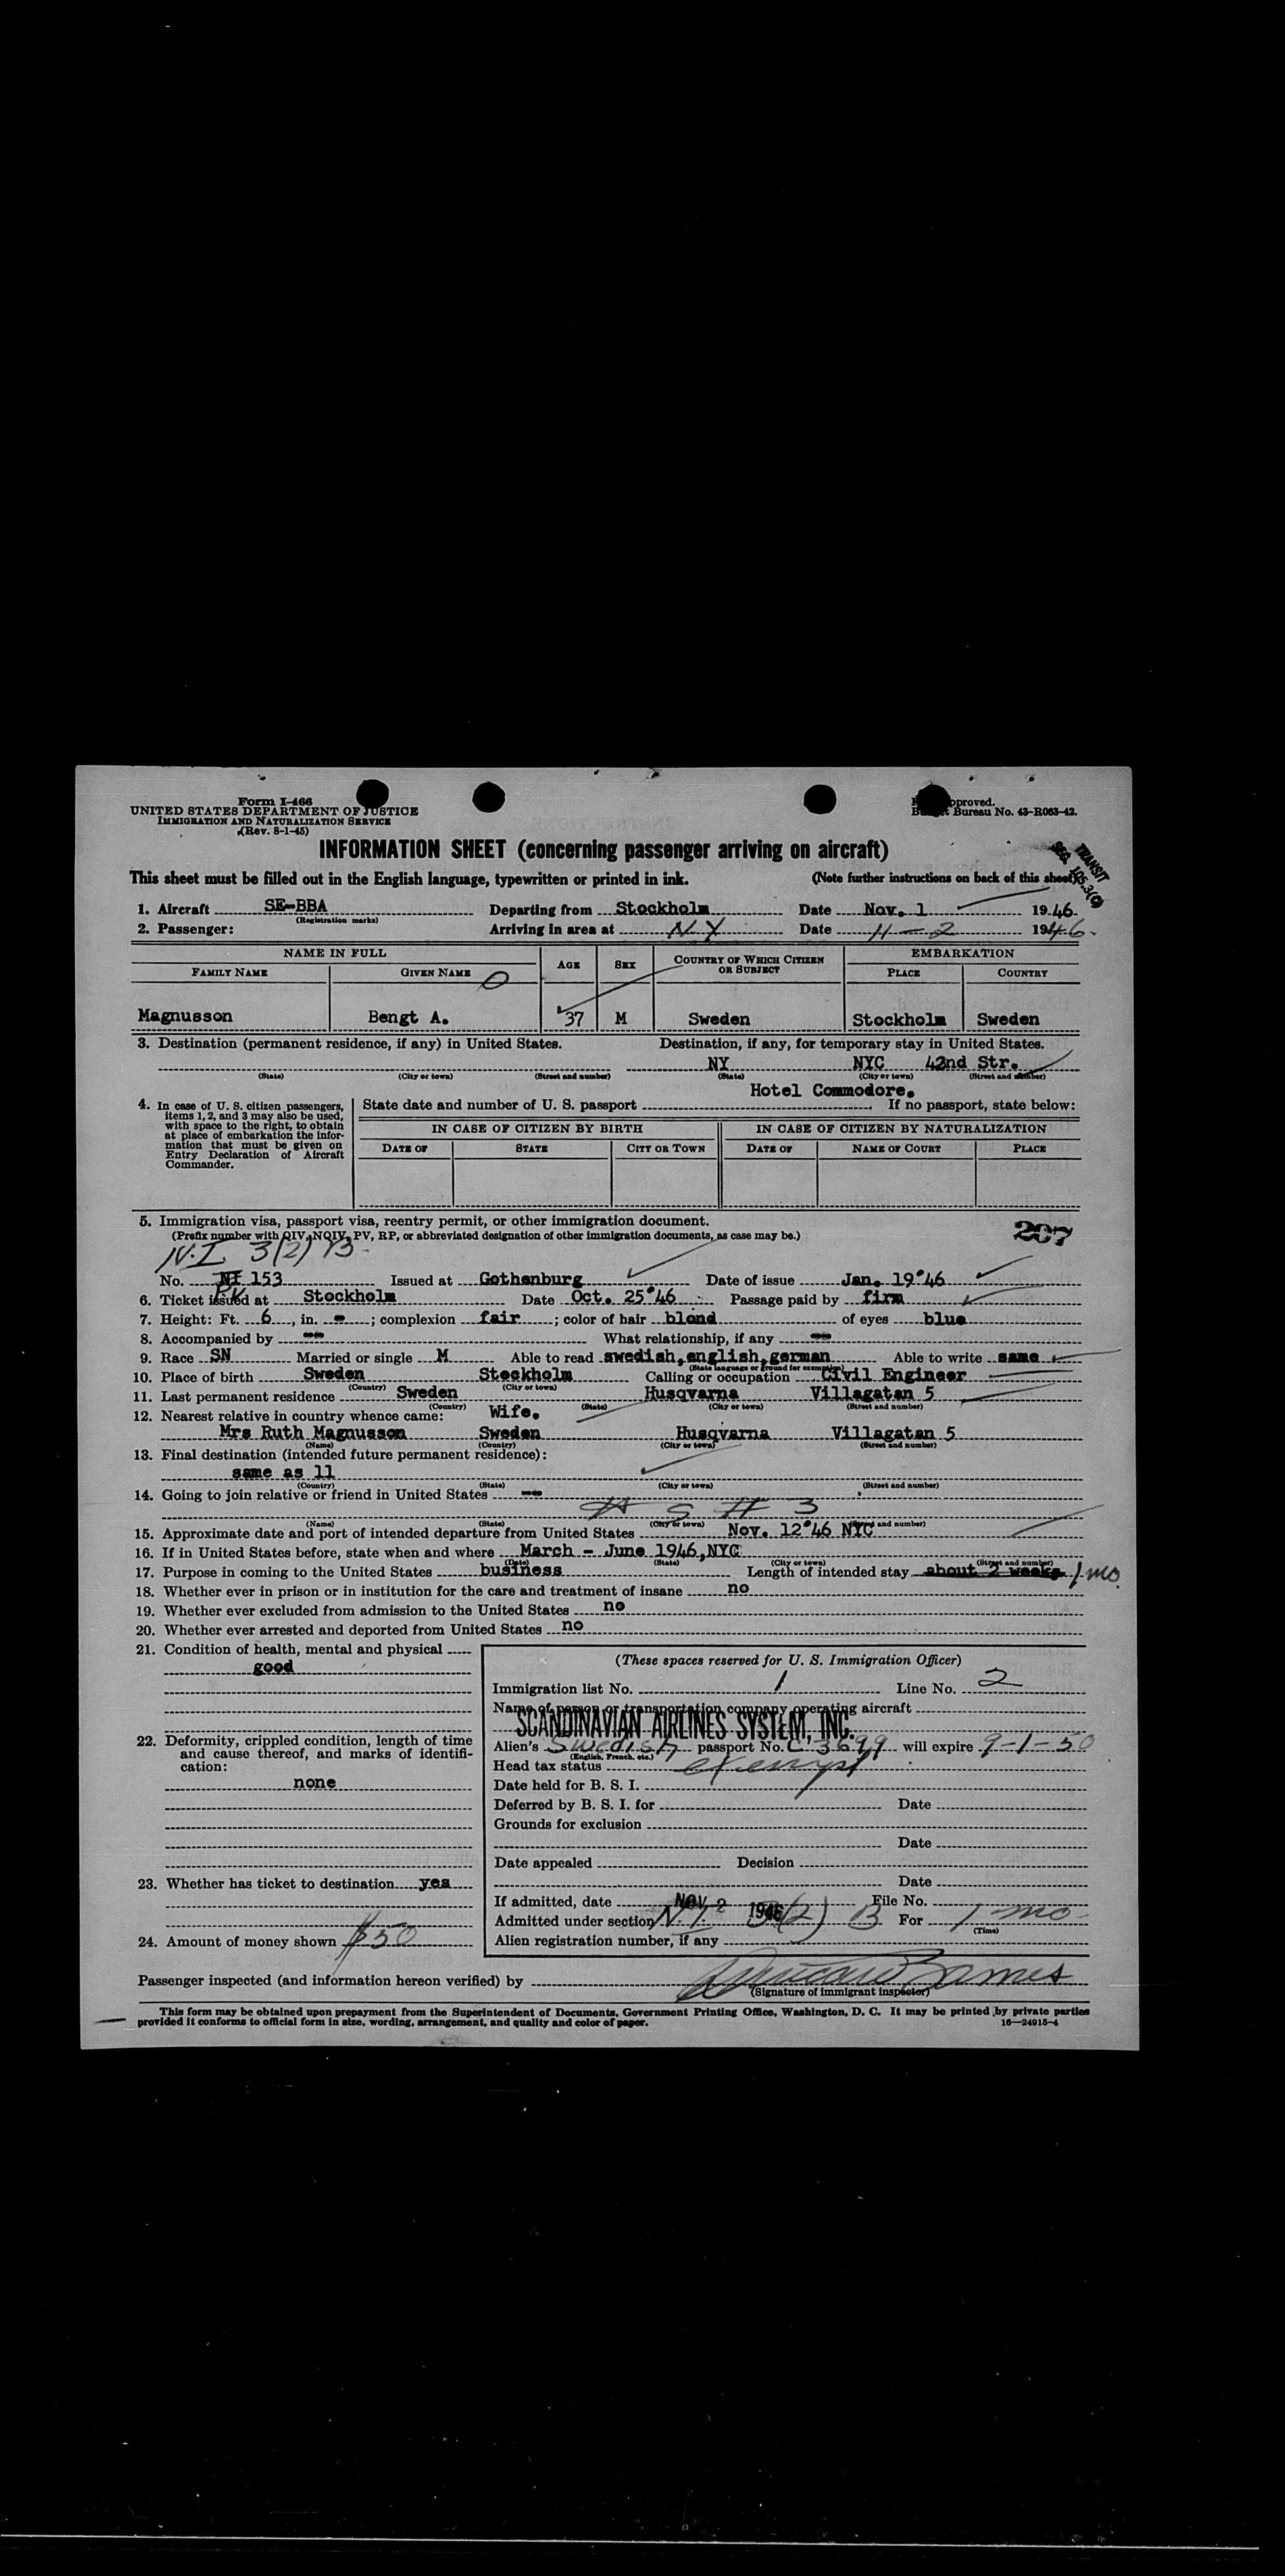 Form I-466
UNITED STATES DEPARTMENT OF JUSTICE
IMMIGRATION AND NATURALIZATION SERVICE
(Rev. 8-1-45)
pproved.
Bureau No. 43-R063-42.
INFORMATION SHEET (concerning passenger arriving on aircraft)
TRANSIT
This sheet must be filled out in the English language, typewritten or printed in ink. (Note further instructions on back of this sheet)
1. Aircraft SE-BBA Departing from Stockholm Date Nov. 1 1946
(Registration marks)
2. Passenger: Arriving in area at N Y Date 11-2 1946.
NAME IN FULL AGE SEX COUNTRY OF WHICH CITIZEN OR SUBJECT EMBARKATION
FAMILY NAME GIVEN NAME PLACE COUNTRY
Magnusson Bengt A. 37 M Sweden Stockholm Sweden
3. Destination (permanent residence, if any) in United States. Destination, if any, for temporary stay in United States.
NY NYC 42nd Str.
(State) (City or town) (Street and number) (State) (City or town) (Street and number)
Hotel Commodore.
4. In case of U. S. citizen passengers, items 1, 2, and 3 may also be used, with space to the right, to obtain at place of embarkation the information that must be given on Entry Declaration of Aircraft Commander.
State date and number of U. S. passport If no passport, state below:
IN CASE OF CITIZEN BY BIRTH IN CASE OF CITIZEN BY NATURALIZATION
DATE OF STATE CITY OR TOWN DATE OF NAME OF COURT PLACE
5. Immigration visa, passport visa, reentry permit, or other immigration document. 207
(Prefix number with QIV, NQIV, PV, RP, or abbreviated designation of other immigration documents, as case may be.)
N.I. 3(2) B
No. NI 153 Issued at Gothenburg Date of issue Jan. 19'46
PV
6. Ticket issued at Stockholm Date Oct. 25'46 Passage paid by firm
7. Height: Ft. 6, in. - ; complexion fair ; color of hair blond of eyes blue
8. Accompanied by -- What relationship, if any --
9. Race SN Married or single M Able to read swedish, english, german Able to write same
(State language or ground for exemption)
10. Place of birth Sweden Stockholm Calling or occupation Civil Engineer
(Country) (City or town)
11. Last permanent residence Sweden Husqvarna Villagatan 5
(Country) (State) (City or town) (Street and number)
12. Nearest relative in country whence came: Wife.
Mrs Ruth Magnusson Sweden Husqvarna Villagatan 5
(Name) (Country) (City or town) (Street and number)
13. Final destination (intended future permanent residence):
same as 11
(Country) (State) (City or town) (Street and number)
14. Going to join relative or friend in United States --
(Name) (State) (City or town) (Street and number)
15. Approximate date and port of intended departure from United States Nov. 12'46 NYC
16. If in United States before, state when and where March - June 1946, NYC
(Date) (State) (City or town) (Street and number)
17. Purpose in coming to the United States business Length of intended stay about 2 weeks 1 mo.
18. Whether ever in prison or in institution for the care and treatment of insane no
19. Whether ever excluded from admission to the United States no
20. Whether ever arrested and deported from United States no
21. Condition of health, mental and physical
good
22. Deformity, crippled condition, length of time and cause thereof, and marks of identification:
none
23. Whether has ticket to destination yes
24. Amount of money shown $50
(These spaces reserved for U. S. Immigration Officer)
Immigration list No. 1 Line No. 2
Name of person or transportation company operating aircraft
SCANDINAVIAN AIRLINES SYSTEM, INC.
Alien's Swedish passport No. C 3699 will expire 9-1-50
(English, French, etc.)
Head tax status exempt
Date held for B. S. I.
Deferred by B. S. I. for Date
Grounds for exclusion
Date
Date appealed Decision
Date
If admitted, date NOV 2 1946 File No.
Admitted under section N.I. 3(2) B For 1 mo
(Time)
Alien registration number, if any
Passenger inspected (and information hereon verified) by
(Signature of immigrant inspector)
This form may be obtained upon prepayment from the Superintendent of Documents, Government Printing Office, Washington, D. C. It may be printed by private parties
provided it conforms to official form in size, wording, arrangement, and quality and color of paper. 16—24915-4